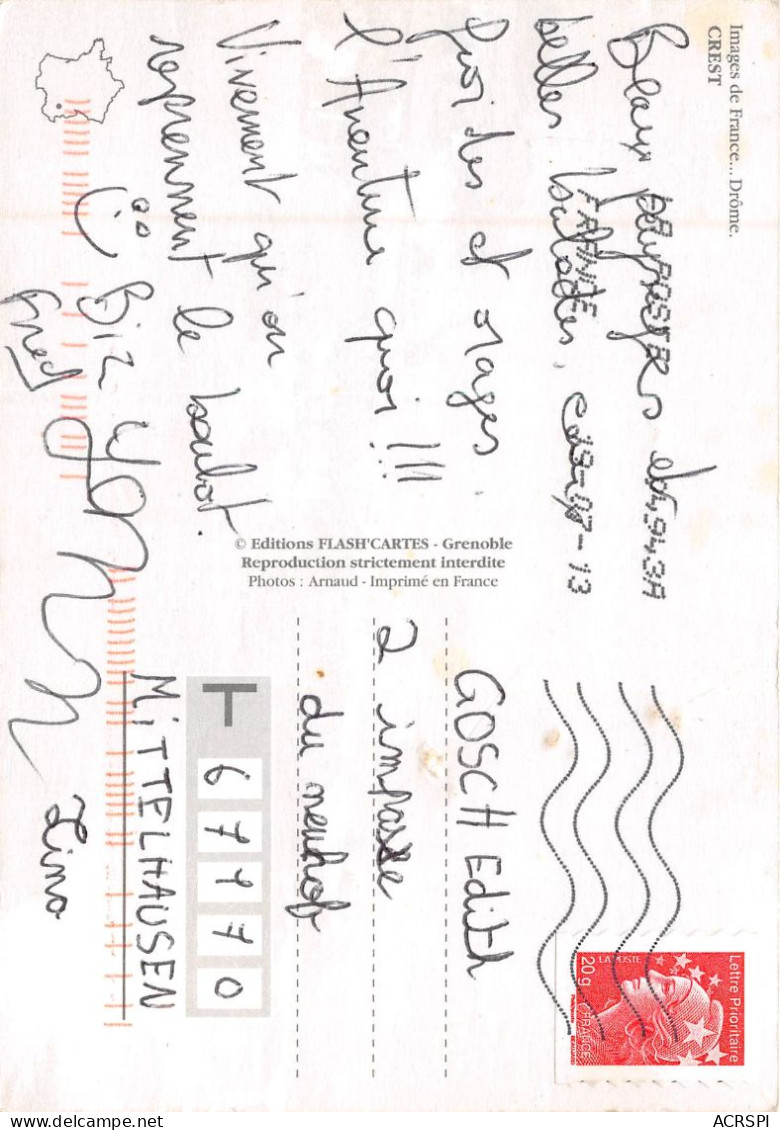 Images de France... Drôme.
CREST
Beaux paysages et
belles balades, 
LA POSTE
FRANCE
-13
gri des et orages
l'Aventure quoi !!!
Vivement qu'on
reprennent le boulot.
Biz
Fred
Yann
Lino
© Editions FLASH'CARTES - Grenoble
Reproduction strictement interdite
Photos : Arnaud - Imprimé en France
GOSCH Edith
2 impasse
du neuhof
67170
MiTTELHAUSEN
Lettre Prioritaire
LA POSTE
20g
FRANCE
ACRSPI